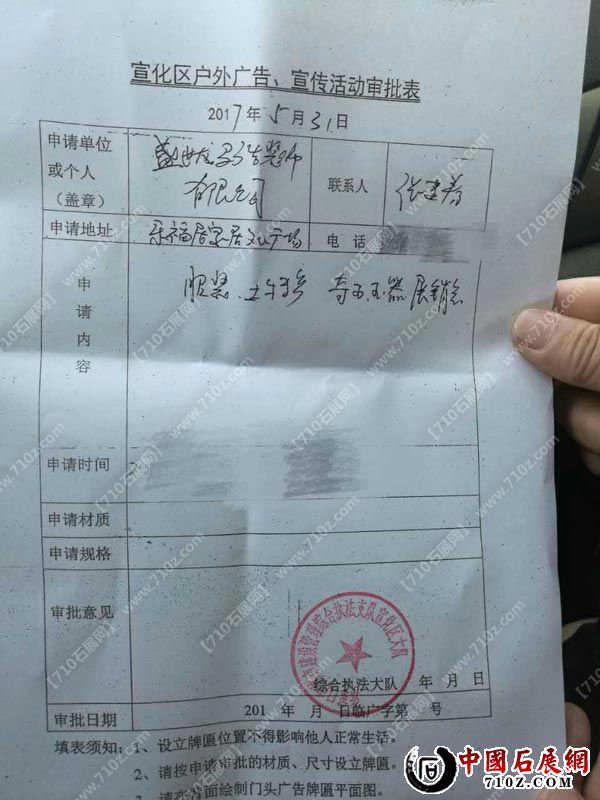 宣化区户外广告、宣传活动审批表
2017年5月31日
申请单位
或个人
(盖章)
有限公司
联系人
申请地址
乐福居家居文化广场
电话
申请内容
服装 土特产 奇石玉器展销会
申请时间
申请材质
申请规格
审批意见
综合执法大队 年 月 日
审批日期
201 年 月 日临广字第 号
填表须知:1、设立牌匾位置不得影响他人正常生活。
2、请按申请审批的材质、尺寸设立牌匾。
背面绘制门头广告牌匾平面图。
中國石展網
710Z.COM
【710石展网】
www.710z.com